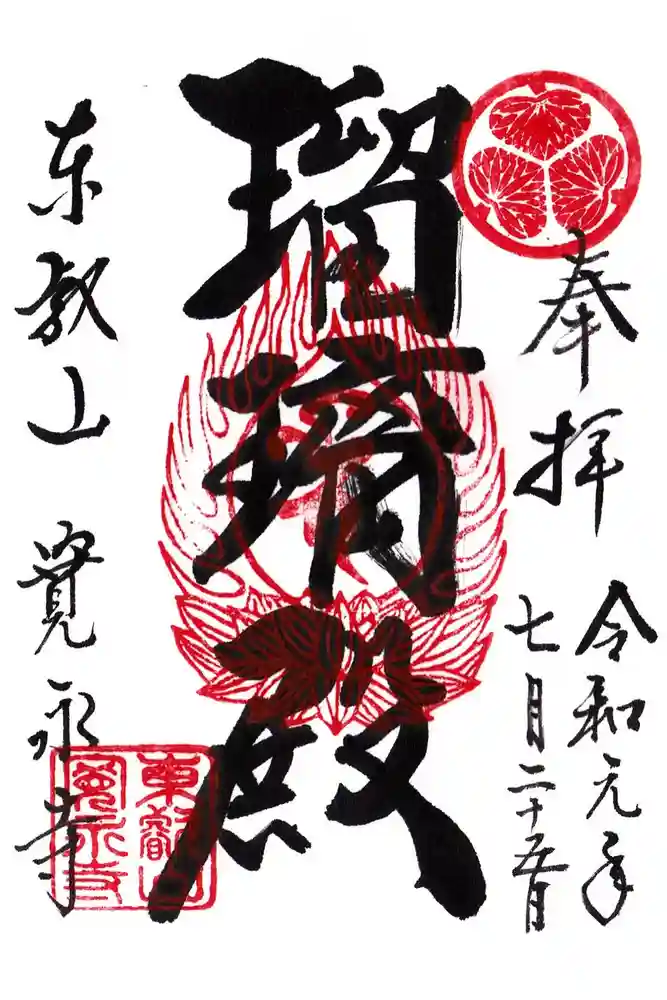 奉拝
令和元年
七月二十五日
瑠璃殿
东叡山 寛永寺
東叡山
寛永寺